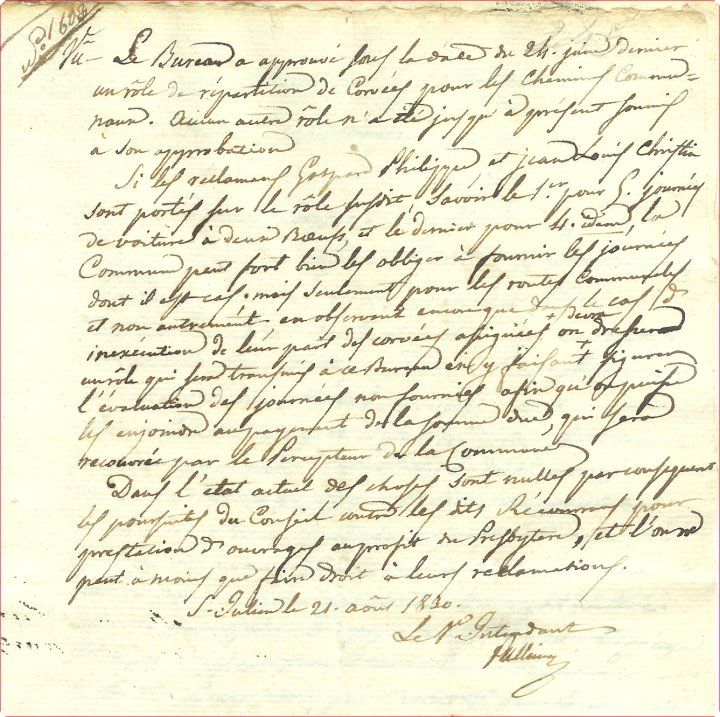 N.° 1608
Vu - Le Bureau a approuvé sous la date du 24. juin dernier
un rôle de répartition de Corvées pour les Chemins Commu-
naux. Aucun autre rôle n'a été jusqu'à présent soumis
à son approbation
Si les réclamans Gaspard Philippe et jean Louis Christin
sont portés sur le rôle susdit savoir le 1.er pour 6. journées
de voiture à deux Bœufs, et le dernier pour 4. idem, la
Commune peut fort bien les obliger à fournir les journées
dont il est cas. mais seulement pour les routes Communales
et non autrement. en observant encore que dans le cas d'
inexécution de leur part des corvées assignées on devra dresser
un rôle qui sera transmis à ce Bureau en y faisant figurer
l'évaluation des journées non fournies afin qu'on puisse
les enjoindre au payement de la somme due, qui sera
recouvrée par le Percepteur de la Commune
Dans l'état actuel des choses sont nulles par conséquent
les poursuites du Conseil contre les dits Récourrans pour
prestation d'ouvrages au profit du Presbytère, et l'on ne
peut à moins que faire droit à leurs reclamations.
S. Julien le 21. août 1830.
Le V.e Intendant